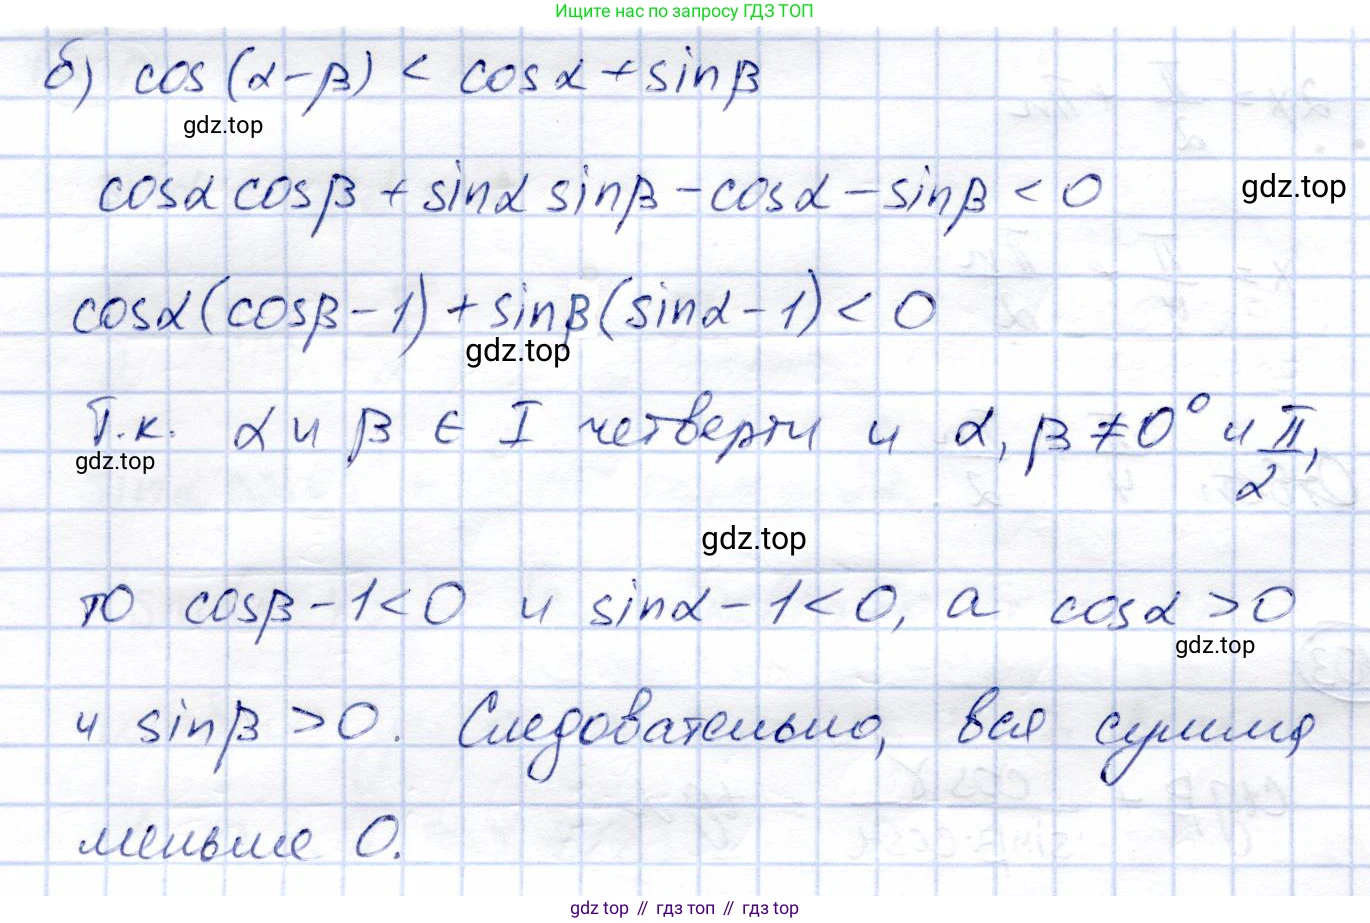 Ищите нас по запросу ГДЗ ТОП
б) cos(α-β) < cosα + sinβ
gdz.top
cosα cosβ + sinα sinβ - cosα - sinβ < 0
gdz.top
cosα(cosβ - 1) + sinβ(sinα - 1) < 0
gdz.top
Т.к. α и β ∈ I четверти и α, β ≠ 0° и π/2,
gdz.top
gdz.top
то cosβ - 1 < 0 и sinα - 1 < 0, а cosα > 0
gdz.top
и sinβ > 0. Следовательно, вся сумма
меньше 0.
gdz top // гдз топ // gdz top